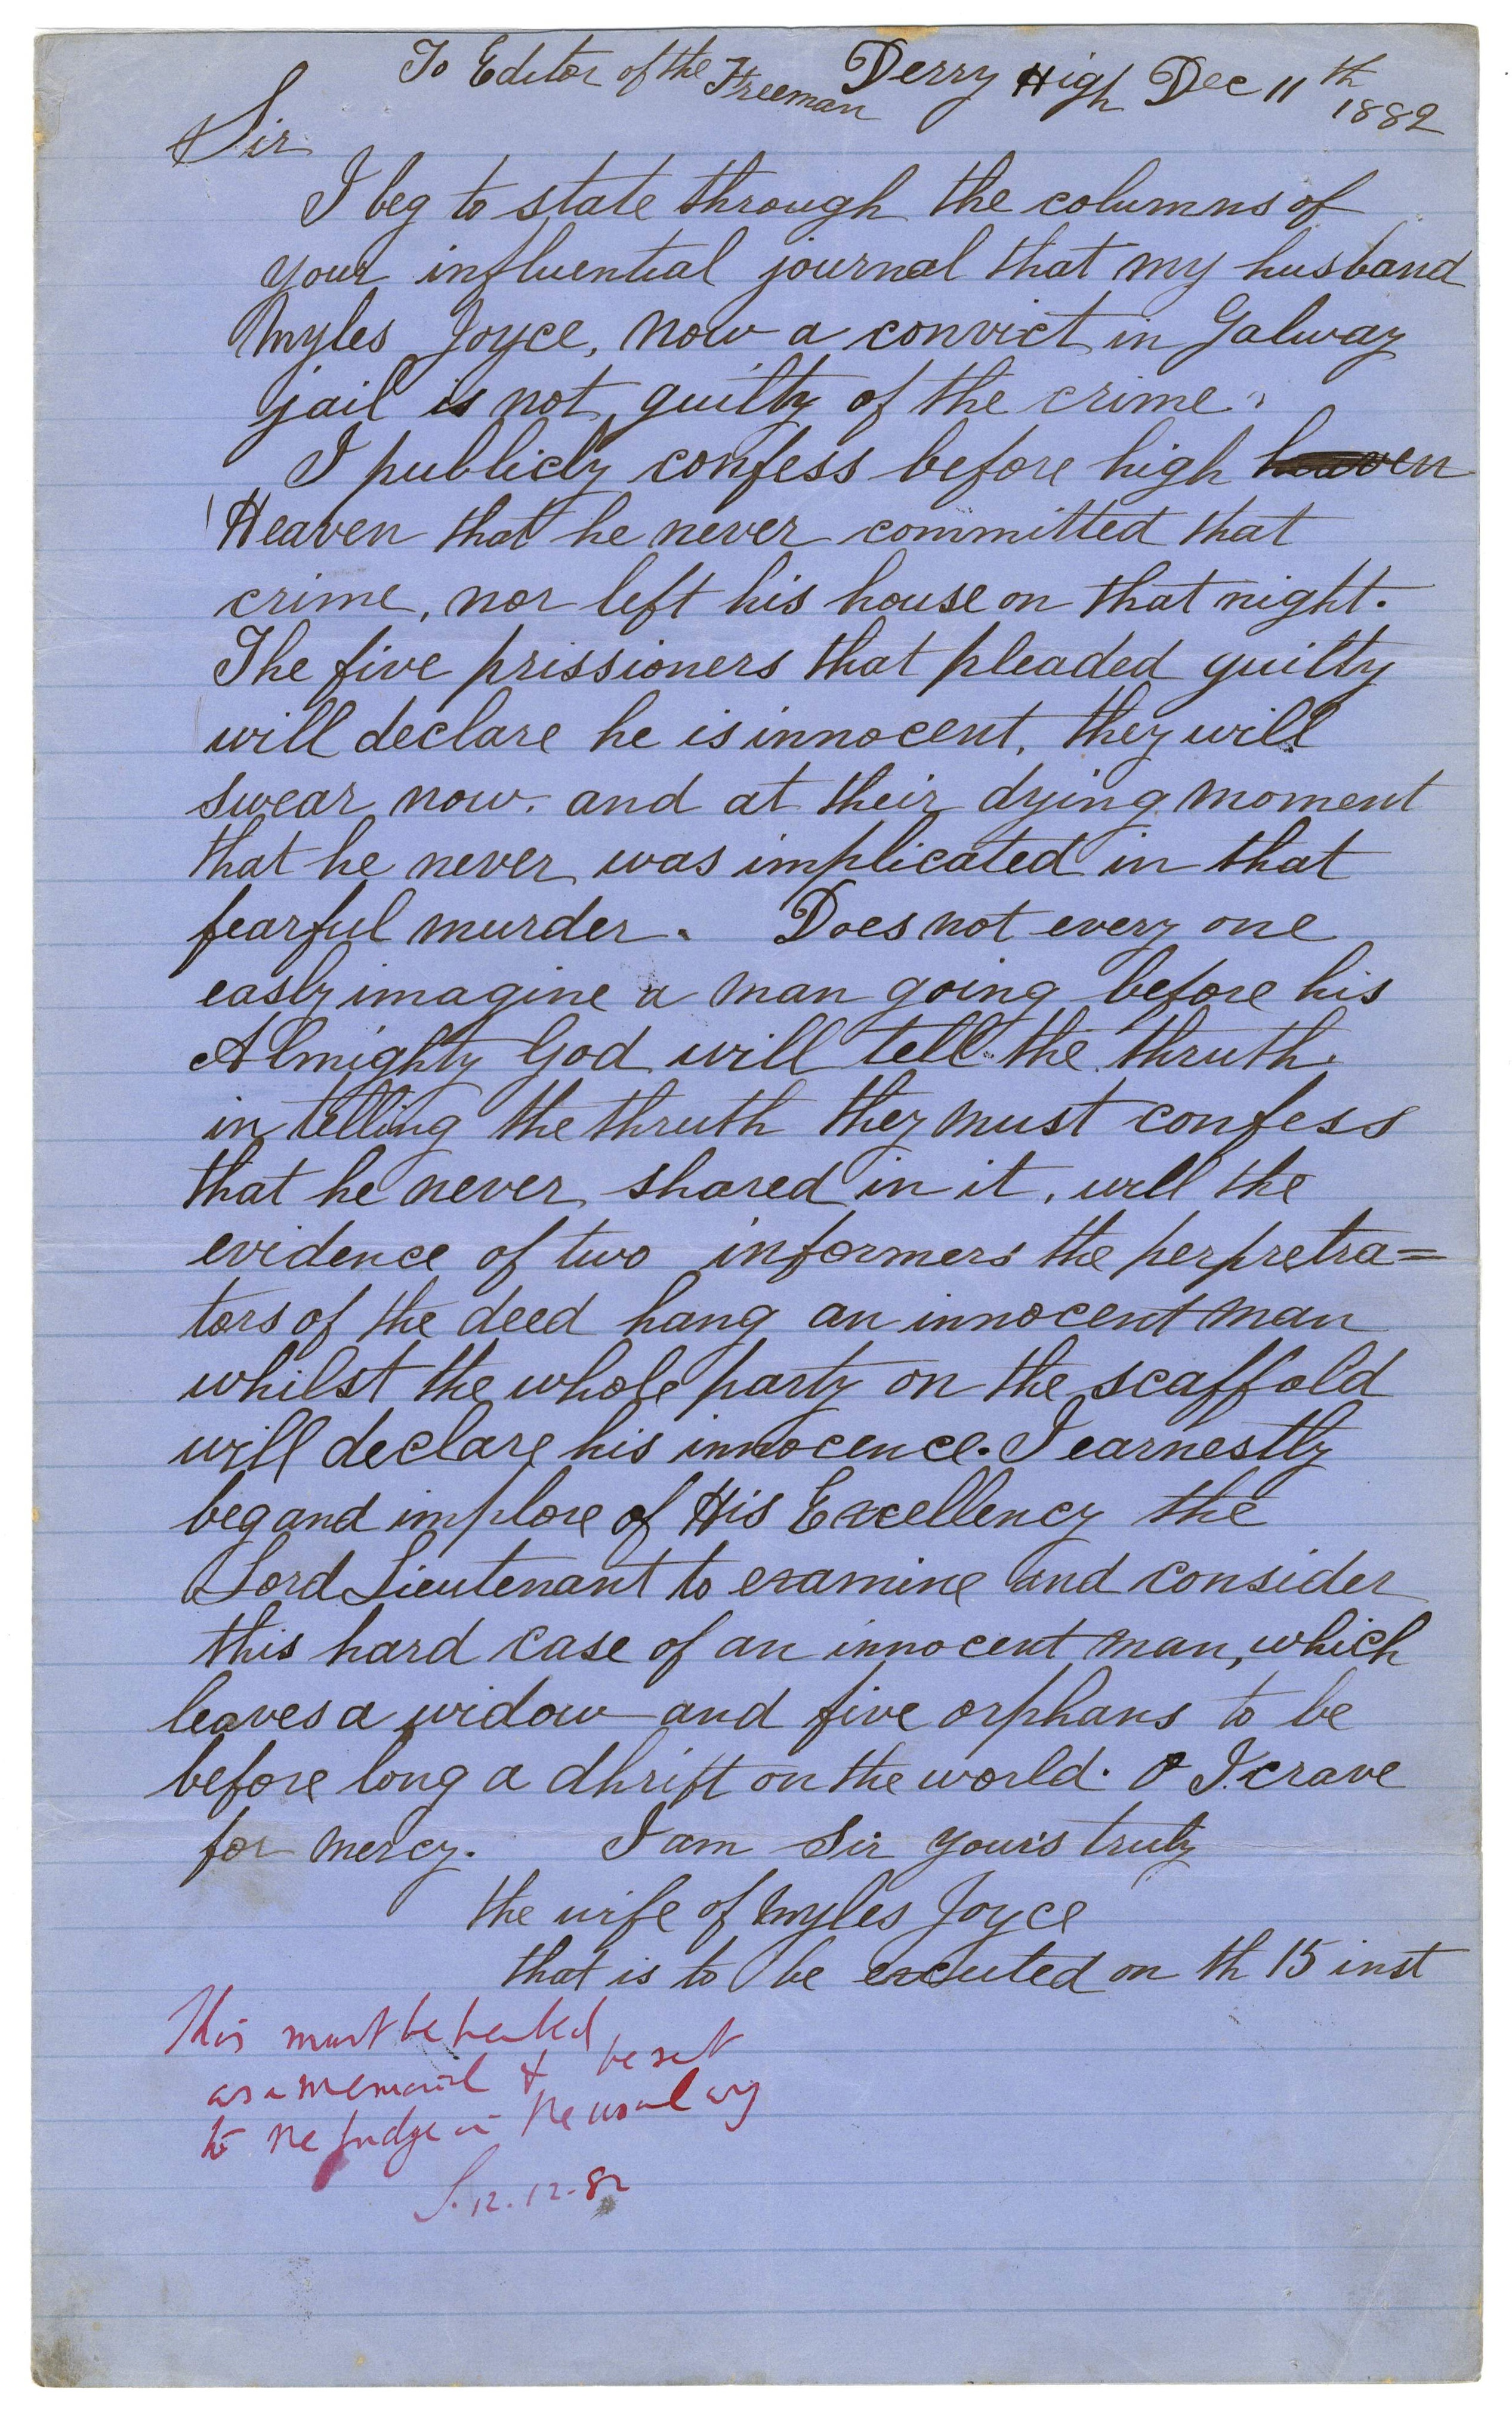 To Editor of the Freeman Derry High Dec 11th 1882
Sir
I beg to state through the columns of
your influential journal that my husband
Myles Joyce, now a convict in Galway
jail is not guilty of the crime.
I publicly confess before high heaven
Heaven that he never committed that
crime, nor left his house on that night.
The five prissioners that pleaded guilty
will declare he is innocent, they will
swear now. and at their dying moment
that he never was implicated in that
fearful murder. Does not every one
easly imagine a man going before his
Almighty God will tell the thruth.
in telling the thruth they must confess
that he never shared in it, will the
evidence of two informers the perpretra=
tors of the deed hang an innocent man
whilst the whole party on the scaffold
will declare his innocence. I earnestly
beg and implore of His Excellency the
Lord Lieutenant to examine and consider
this hard case of an innocent man, which
leaves a widow and five orphans to be
before long a dhrift on the world. O I crave
for mercy. I am Sir yours truly
the wife of Myles Joyce
that is to be excuted on th 15 inst
This must be treated
as a memorial & be sent
to the judge in the usual way
S. 12.12.82